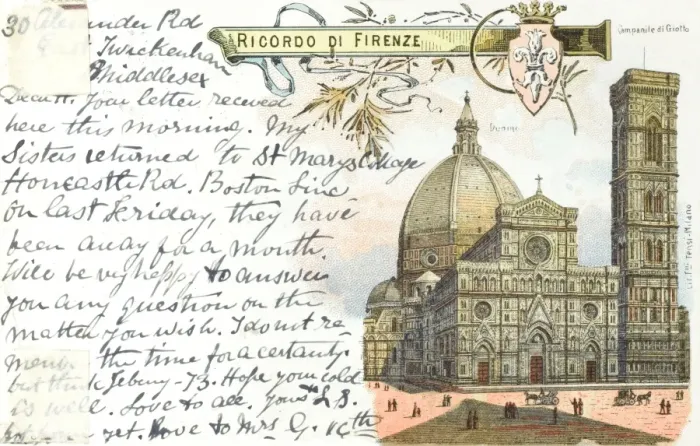 30 Alexander Rd
Twickenham
Middlesex
Dear H. your letter received
here this morning. My
Sisters returned to St Marys College
Horncastle Rd. Boston Linc
on last Friday, they have
been away for a month.
Will be very happy to answer
you any question on the
matter you wish. I do not re
mem the time for a certanty.
but think Febuary - 73. Hope your cold
is well. Love to all, yours L.B.
yet. Love to Mrs G.
RICORDO DI FIRENZE
Duomo
Campanile di Giotto
Lit. F.lli Tensi-Milano